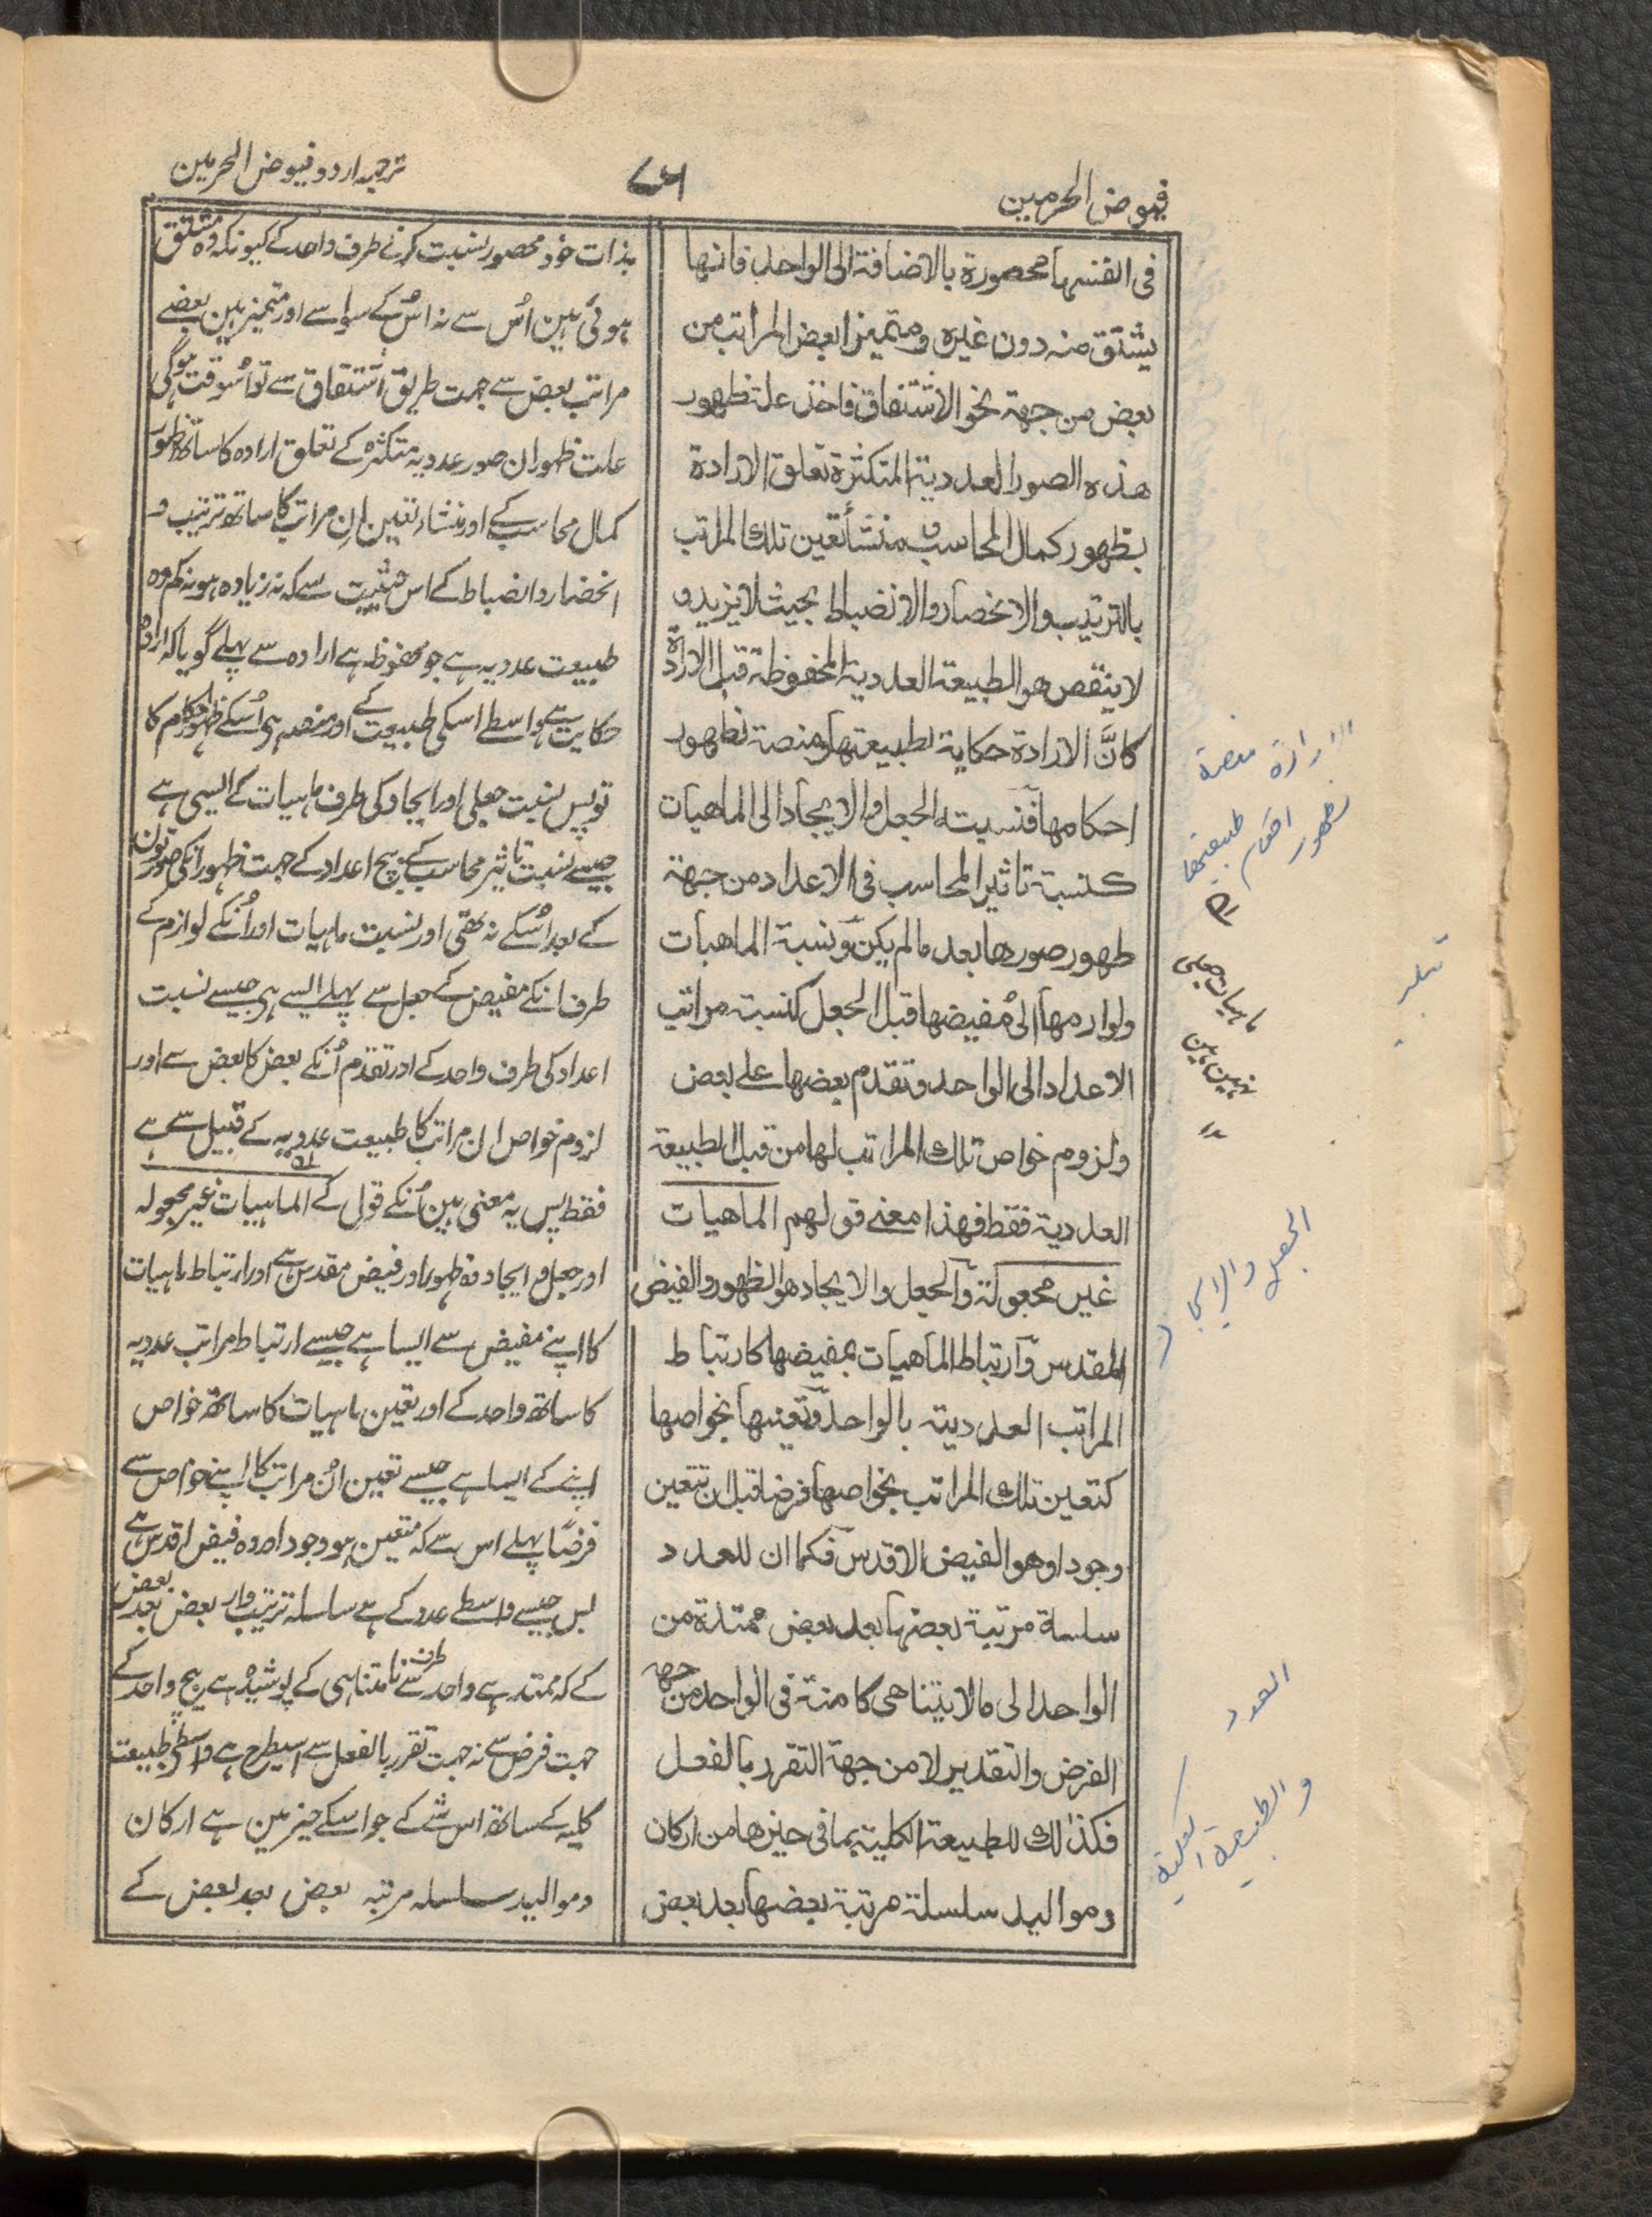 فیوض الحرمین
ترجمہ اردو فیوض الحرمین
فی انفسہا محصورة بالاضافة الی الواحد فانہا
یشتق منہ دون غیرہ ومتمیزا بعض المراتب من
بعض من جہة نحو الاشتقاق فاذن علة ظہور
ھذہ الصور العددیة المتکثرة تعلق الارادة
بظہور کمال المحاسب ومنشأ تعین تلك المراتب
بالترتیب والانحصار والانضباط بحیث لا یزید و
لا ینقص ھو الطبیعة العددیة المحفوظة قبل الارادة
کانّ الارادة حکایة لطبیعتہا ومنصة لظہور
احکامہا فنسبة الجعل والایجاد الی الماھیات
کنسبة تاثیر المحاسب فی الاعداد من جہة
ظہور صورھا بعد مالم یکن ونسبة الماھیات
ولوازمہا الی مُفیضہا قبل الجعل کنسبة مراتب
الاعداد الی الواحد وتقدم بعضہا علے بعض
ولزوم خواص تلك المراتب لہا من قبل الطبیعة
العددیة فقط فھذا معنے قولہم الماھیات
غیر مجعولة والجعل والایجاد ھو الظہور والفیض
المقدس وارتباط الماھیات بمفیضہا کارتباط
المراتب العددیة بالواحد وتعینہا بخواصہا
کتعین تلك المراتب بخواصہا فرضا قبل ان تتعین
وجودا وھو الفیض الاقدس فکما ان للعدد
سلسلة مرتبة بعضہا بعد بعض ممتدة من
الواحد الی مالا یتناھی کامنة فی الواحد من جہة
الفرض والتقدیر لا من جہة التقرر بالفعل
فکذلك للطبیعة الکلیة بما فی حیزھا من ارکان
وموالید سلسلة مرتبة بعضہا بعد بعض
بذات خود محصور نسبت کرنے طرف واحد کے کیونکہ وہ مشتق
ہوئی ہین اُس سے نہ اُس کے سوا سے اور متمیز ہین بعضے
مراتب بعض سے جہت طریق اشتقاق سے تو اُسوقت ہوگی
علت ظہور ان صور عددیہ متکثرہ کے تعلق ارادہ کا ساتھ ظہور
کمال محاسب کے اور منشاء تعین اِن مراتب کا ساتھ ترتیب و
انحصار و انضباط کے اس حیثیت سے کہ نہ زیادہ ہو نہ کم وہ
طبیعت عددیہ ہے جو محفوظ ہے ارادہ سے پہلے گویا کہ ارادہ
حکایت ہے واسطے اسکی طبیعت کے اور منصہ ہی اُسکے ظہور احکام کا
تو پس نسبت جعلی اور ایجاد کی طرف ماہیات کے ایسی ہے
جیسے نسبت تاثیر محاسب کے بیچ اعداد کے جہت ظہور انکی صورتون
کے بعد اُسکے نہ تھی اور نسبت ماہیات اور اُنکے لوازم کے
طرف انکے مفیض کے جعل سے پہلے ایسے ہی جیسے نسبت
اعداد کی طرف واحد کے اور تقدم اُنکے بعض کا بعض سے اور
لزوم خواص ان مراتب کا طبیعت عددیہ کے قبیل سے ہے
فقط پس یہ معنی ہین اُنکے قول کے الماہیات غیر مجعولہ
اور جعل و ایجاد وہ ظہور اور فیض مقدس ہے اور ارتباط ماہیات
کا اپنے مفیض سے ایسا ہے جیسے ارتباط مراتب عددیہ
کا ساتھ واحد کے اور تعین ماہیات کا ساتھ خواص
اپنے کے ایسا ہے جیسے تعین اُن مراتب کا اپنے خواص سے
فرضًا پہلے اس سے کہ متعین ہو وجودا اور وہ فیض اقدس ہے
پس جیسے واسطے عدد کے ہے سلسلہ ترتیب وار بعض بعد بعض
کے کہ ممتد ہے واحد سے طرف نامتناہی کے پوشیدہ ہے بیچ واحد کے
جہت فرض سے نہ جہت تقرر بالفعل سے اسیطرح ہے واسطی طبیعت
کلیہ کے ساتھ اس شے کے جو اسکے حیز مین ہے ارکان
و موالید سلسلہ مرتبہ بعض بعد بعض کے
الارادة منصة
ظہور احکام طبیعتہا
ماہیات جعلی
نہین ہین
الجعل والایجاد
العدد
والطبیعة الکلیة